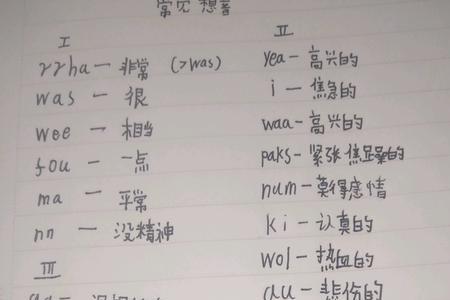 常见 想音
I
rrha — 非常 (>was)
was — 很
wee — 相当
fou — 一点
ma — 平常
nn — 没精神
III
II
yea — 高兴的
i — 焦急的
waa — 高兴的
paks — 紧张焦躁的
num — 莫得感情
ki — 认真的
wol — 热血的
au — 悲伤的